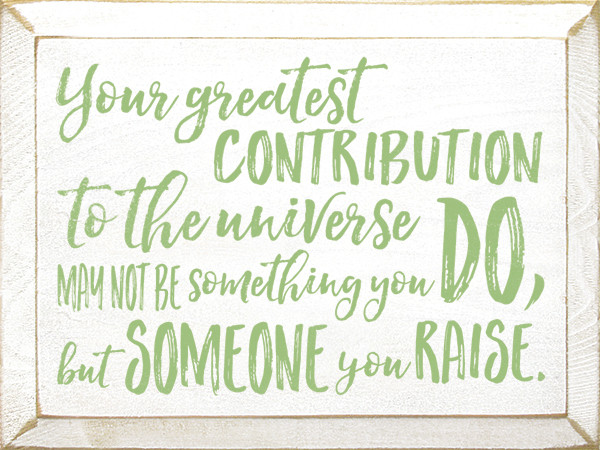 Your greatest
CONTRIBUTION
to the universe
MAY NOT BE something you DO,
but SOMEONE you RAISE.